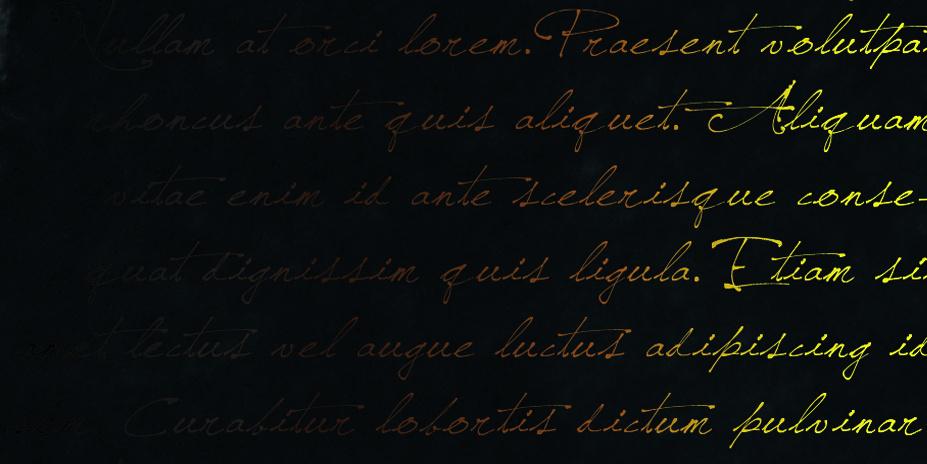 Nullam at orci lorem. Praesent volutpa
rhoncus ante quis aliquet. Aliquam
vitae enim id ante scelerisque conse-
quat dignissim quis ligula. Etiam si
et lectus vel augue luctus adipiscing id
Curabitur lobortis dictum pulvinar